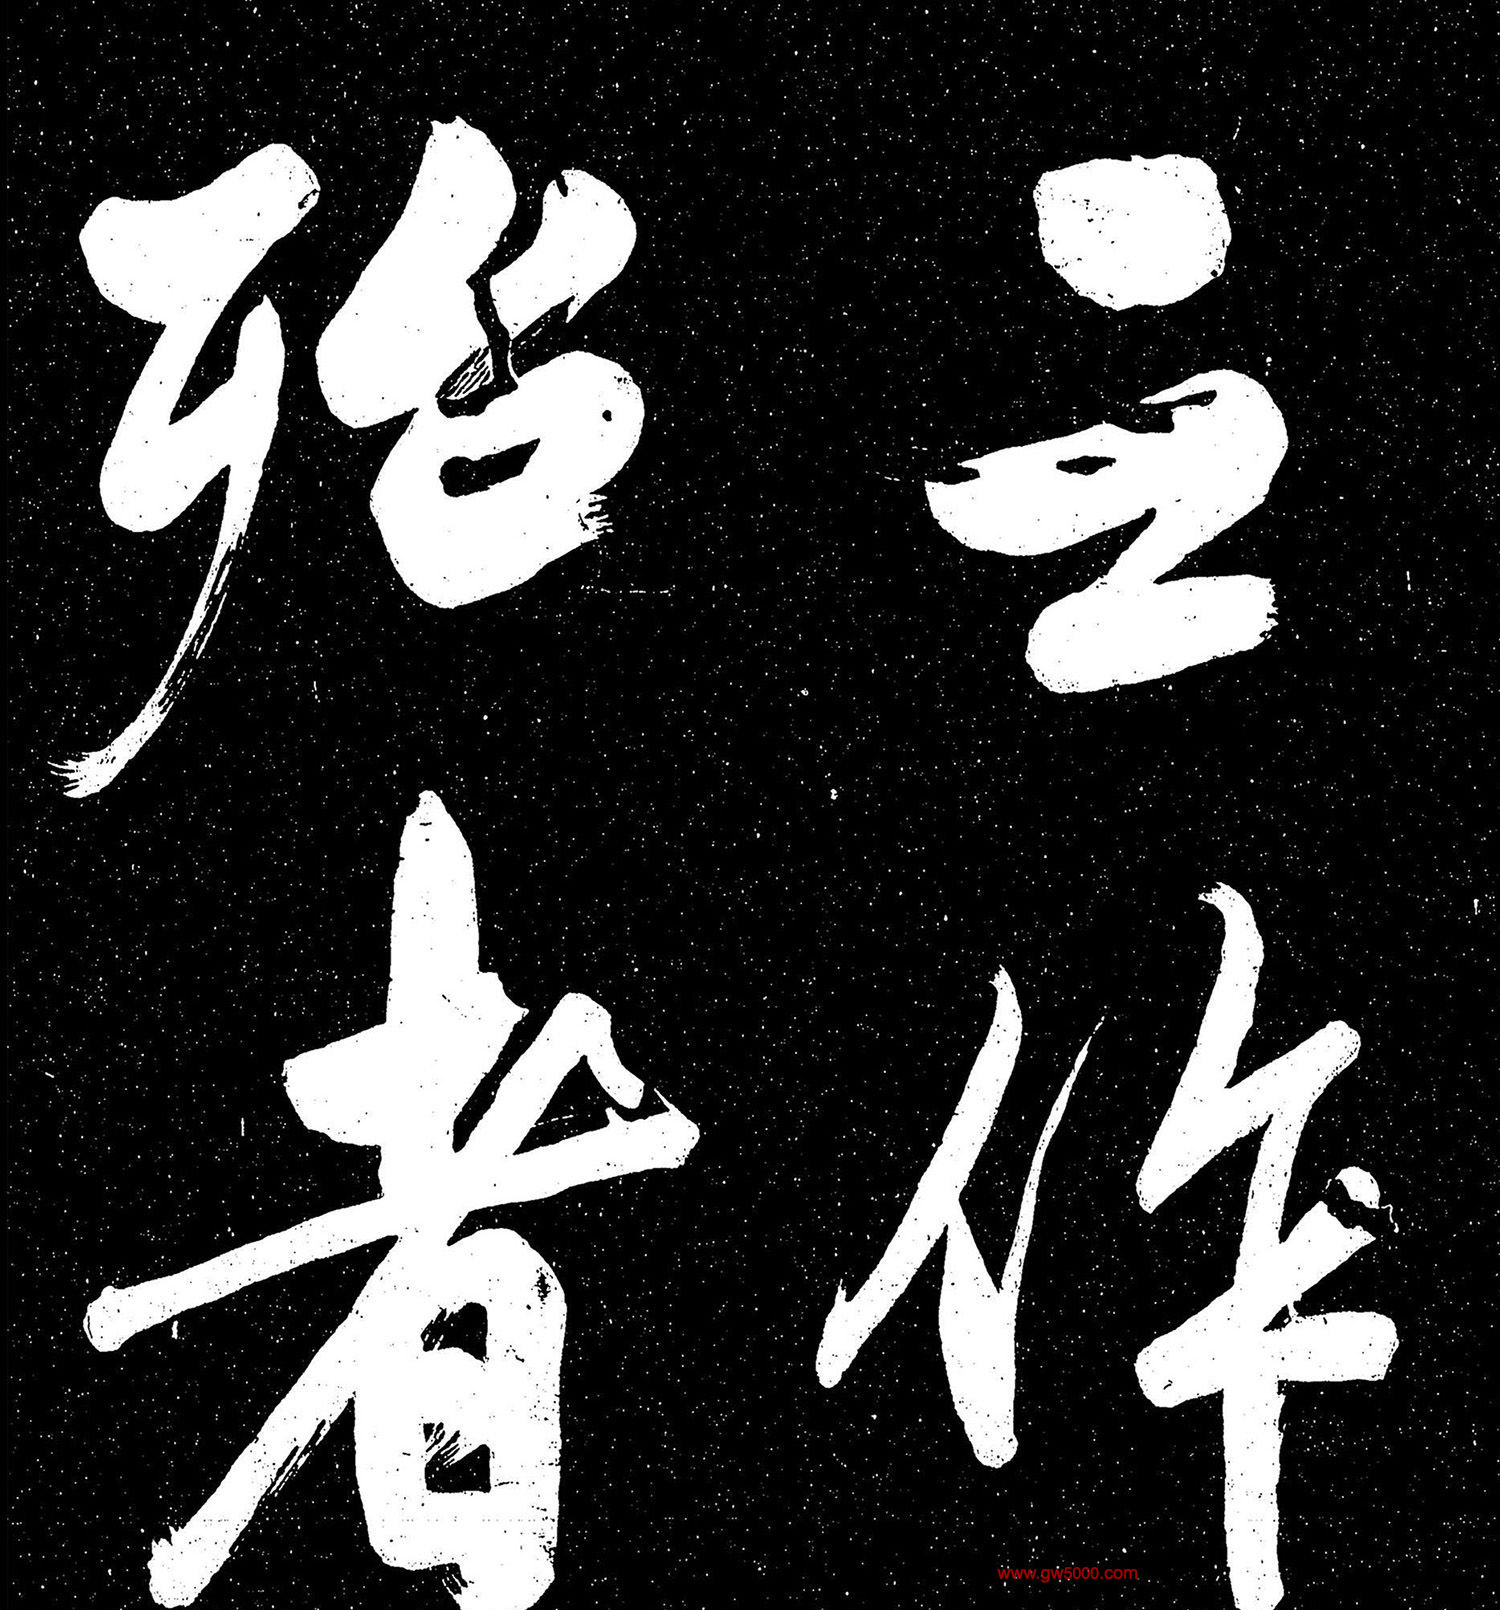 之作
殆者
www.gw5000.com